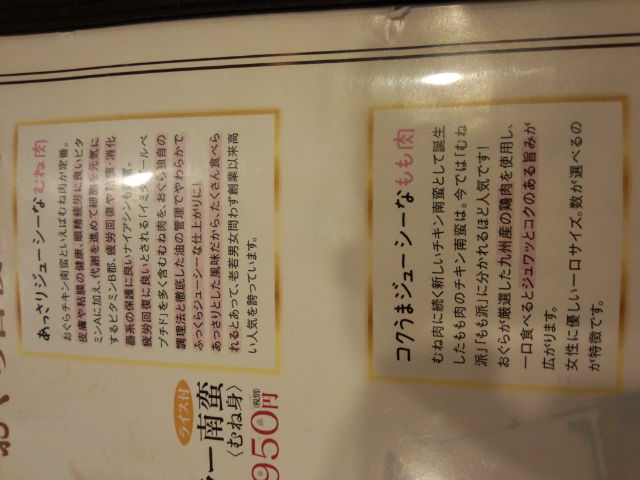 あっさりジューシーなむね肉
おぐらチキン南蛮といえばむね肉が定番。
皮膚や粘膜の健康、眼精疲労に良いビタ
ミンAに加え、代謝を進めて細胞を元気に
するビタミンB郡、疲労回復や粘膜・消化
器系の保護に良いナイアシンも豊富。
疲労回復に良いとされる「イミダゾールペ
プチド」を多く含むむね肉を、おぐら独自の
調理法と徹底した油の管理でやわらかで
ふっくらジューシーな仕上がりに!
あっさりとした風味だから、たくさん食べら
れるとあって、老若男女問わず創業以来高
い人気を誇っています。
コクうまジューシーなもも肉
むね肉に続く新しいチキン南蛮として誕生
したもも肉のチキン南蛮は。今では「むね
派」「もも派」に分かれるほど人気です!
おぐらが厳選した九州産の鶏肉を使用し、
一口食べるとジュワッとコクのある旨みが
広がります。
女性に優しい一口サイズ。数が選べるの
が特徴です。
ライス付
ー南蛮
〈むね身〉
950円(税別)